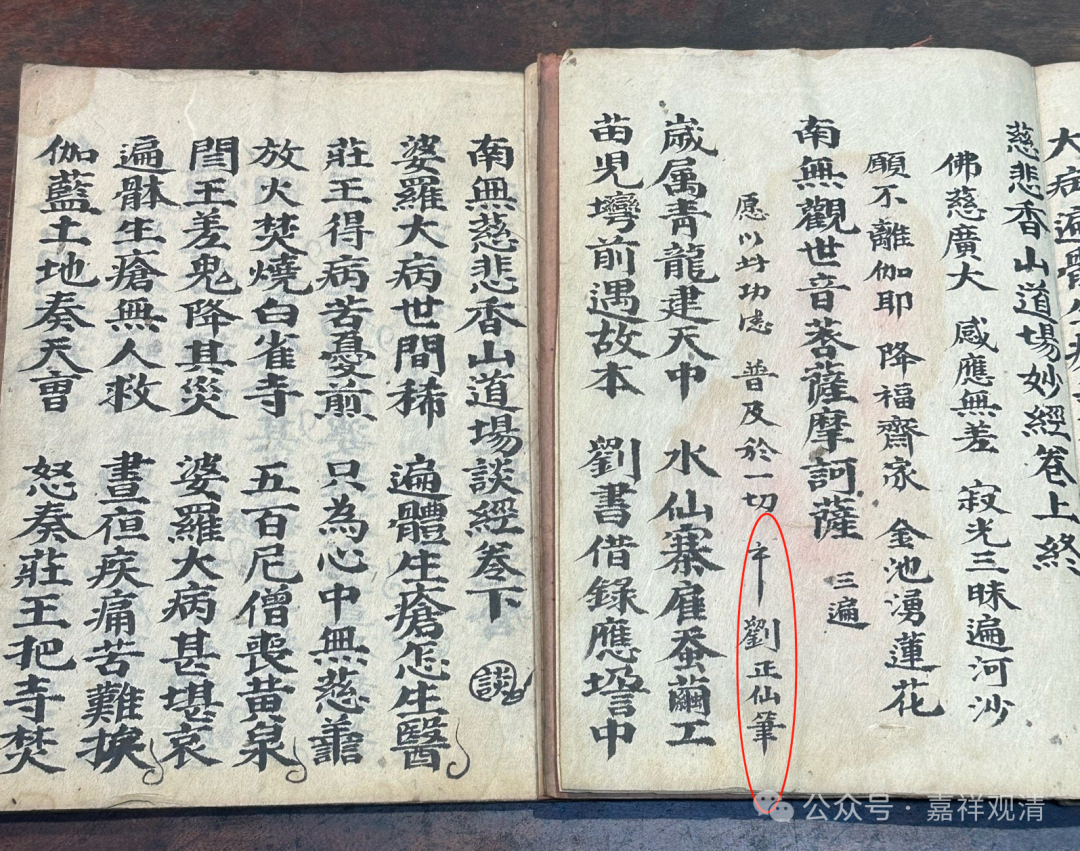 大病遍體生
慈悲香山道場妙經卷上終
佛慈廣大 感應無差 寂光三昧遍河沙
願不離伽耶 降福齋家 金池湧蓮花
南無觀世音菩薩摩訶薩 三遍
愿以此功德 普及於一切 劉正仙筆
歲属青龍建天中 水仙寨雇蚕繭工
苗児灣前遇故本 劉書借錄應壇中
南無慈悲香山道場談經卷下 談
婆羅大病世間稀 遍體生瘡怎生醫
莊王得病苦憂煎 只為心中無慈善
放火焚燒白雀寺 五百尼僧喪黃泉
閻王差鬼降其災 婆羅大病甚堪哀
遍躰生瘡無人救 晝夜疾痛苦難挨
伽藍土地奏天曹 怒奏莊王把寺焚
公众号·嘉祥观清